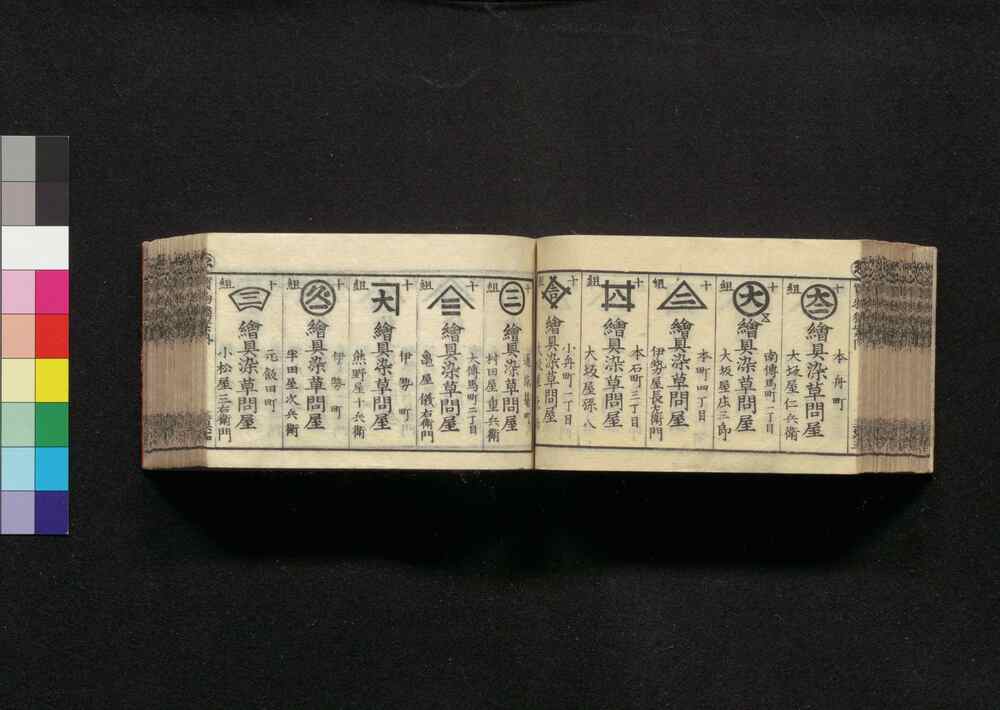 十組
繪具染草問屋
本舟町
大坂屋仁兵衛
十組
大
繪具染草問屋
南傳馬町一丁目
大坂屋庄三郎
十組
三
繪具染草問屋
本町四丁目
伊勢屋長左衛門
十組
繪具染草問屋
本石町三丁目
大坂屋孫八
十組
繪具染草問屋
小舟町一丁目
十組
二
繪具染草問屋
大傳馬町二丁目
村田屋重兵衛
十組
三
繪具染草問屋
亀屋儀右衛門
十組
大
繪具染草問屋
伊勢町
熊野屋十兵衛
十組
繪具染草問屋
伊勢町
半田屋次兵衛
十組
三
繪具染草問屋
元飯田町
小松屋三右衛門